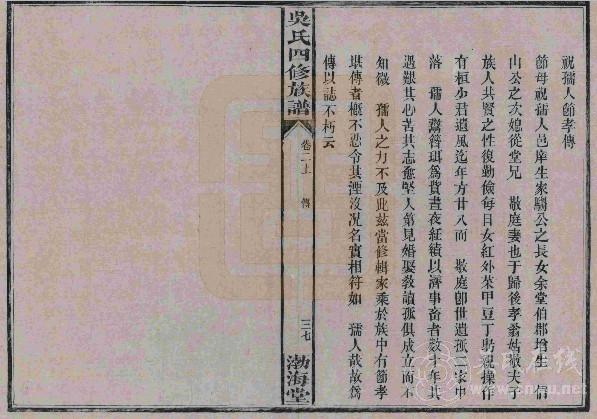 祝孺人節孝傳
節母祝孺人邑庠生家驕公之長女余堂伯郡增生 信
山公之次媳從堂兄 敬庭妻也于歸後孝翁姑敬夫子
族人共賢之性復勤儉每日女紅外菜甲豆丁躬親操作
有桓少君遺風迄年方廿八而 敬庭卽世遺孤二家中
落 孺人鬻簪珥爲貲晝夜紅績以濟事畜者數十年其
遇艱其心苦其志愈堅人第見婚娶教讀孤俱成立而不
知微 孺人之力不及此茲當修輯家乘於族中有節孝
堪傳者概不忍令其湮沒況名實相符如 孺人哉故爲
傳以誌不朽云
吳氏四修族譜
卷二上 傳
三七
渤海堂